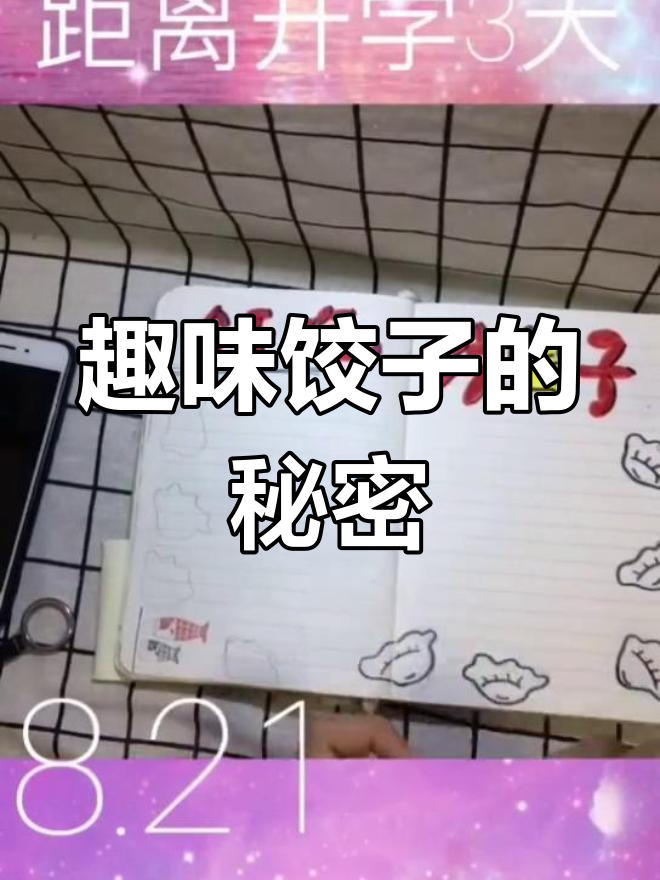 距离开学3天
趣味饺子的
秘密
子
8.21